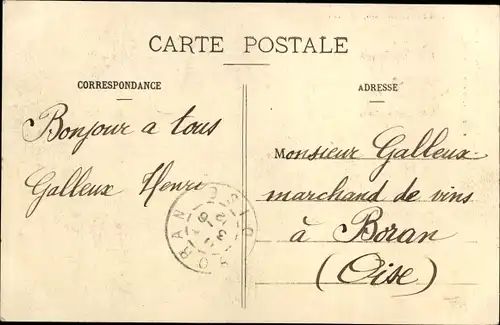 CARTE POSTALE
CORRESPONDANCE
Bonjour a tous
Galleux Henri
ADRESSE
Monsieur Galleux
marchand de vins
à Boran
(Oise)
BORAN OISE